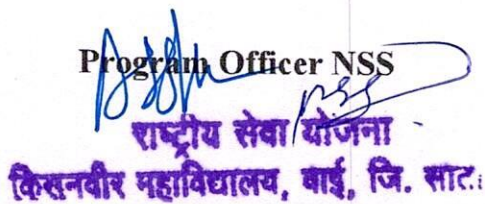 Program Officer NSS
राष्ट्रीय सेवा योजना
किसनवीर महाविद्यालय, वाई, जि. साता